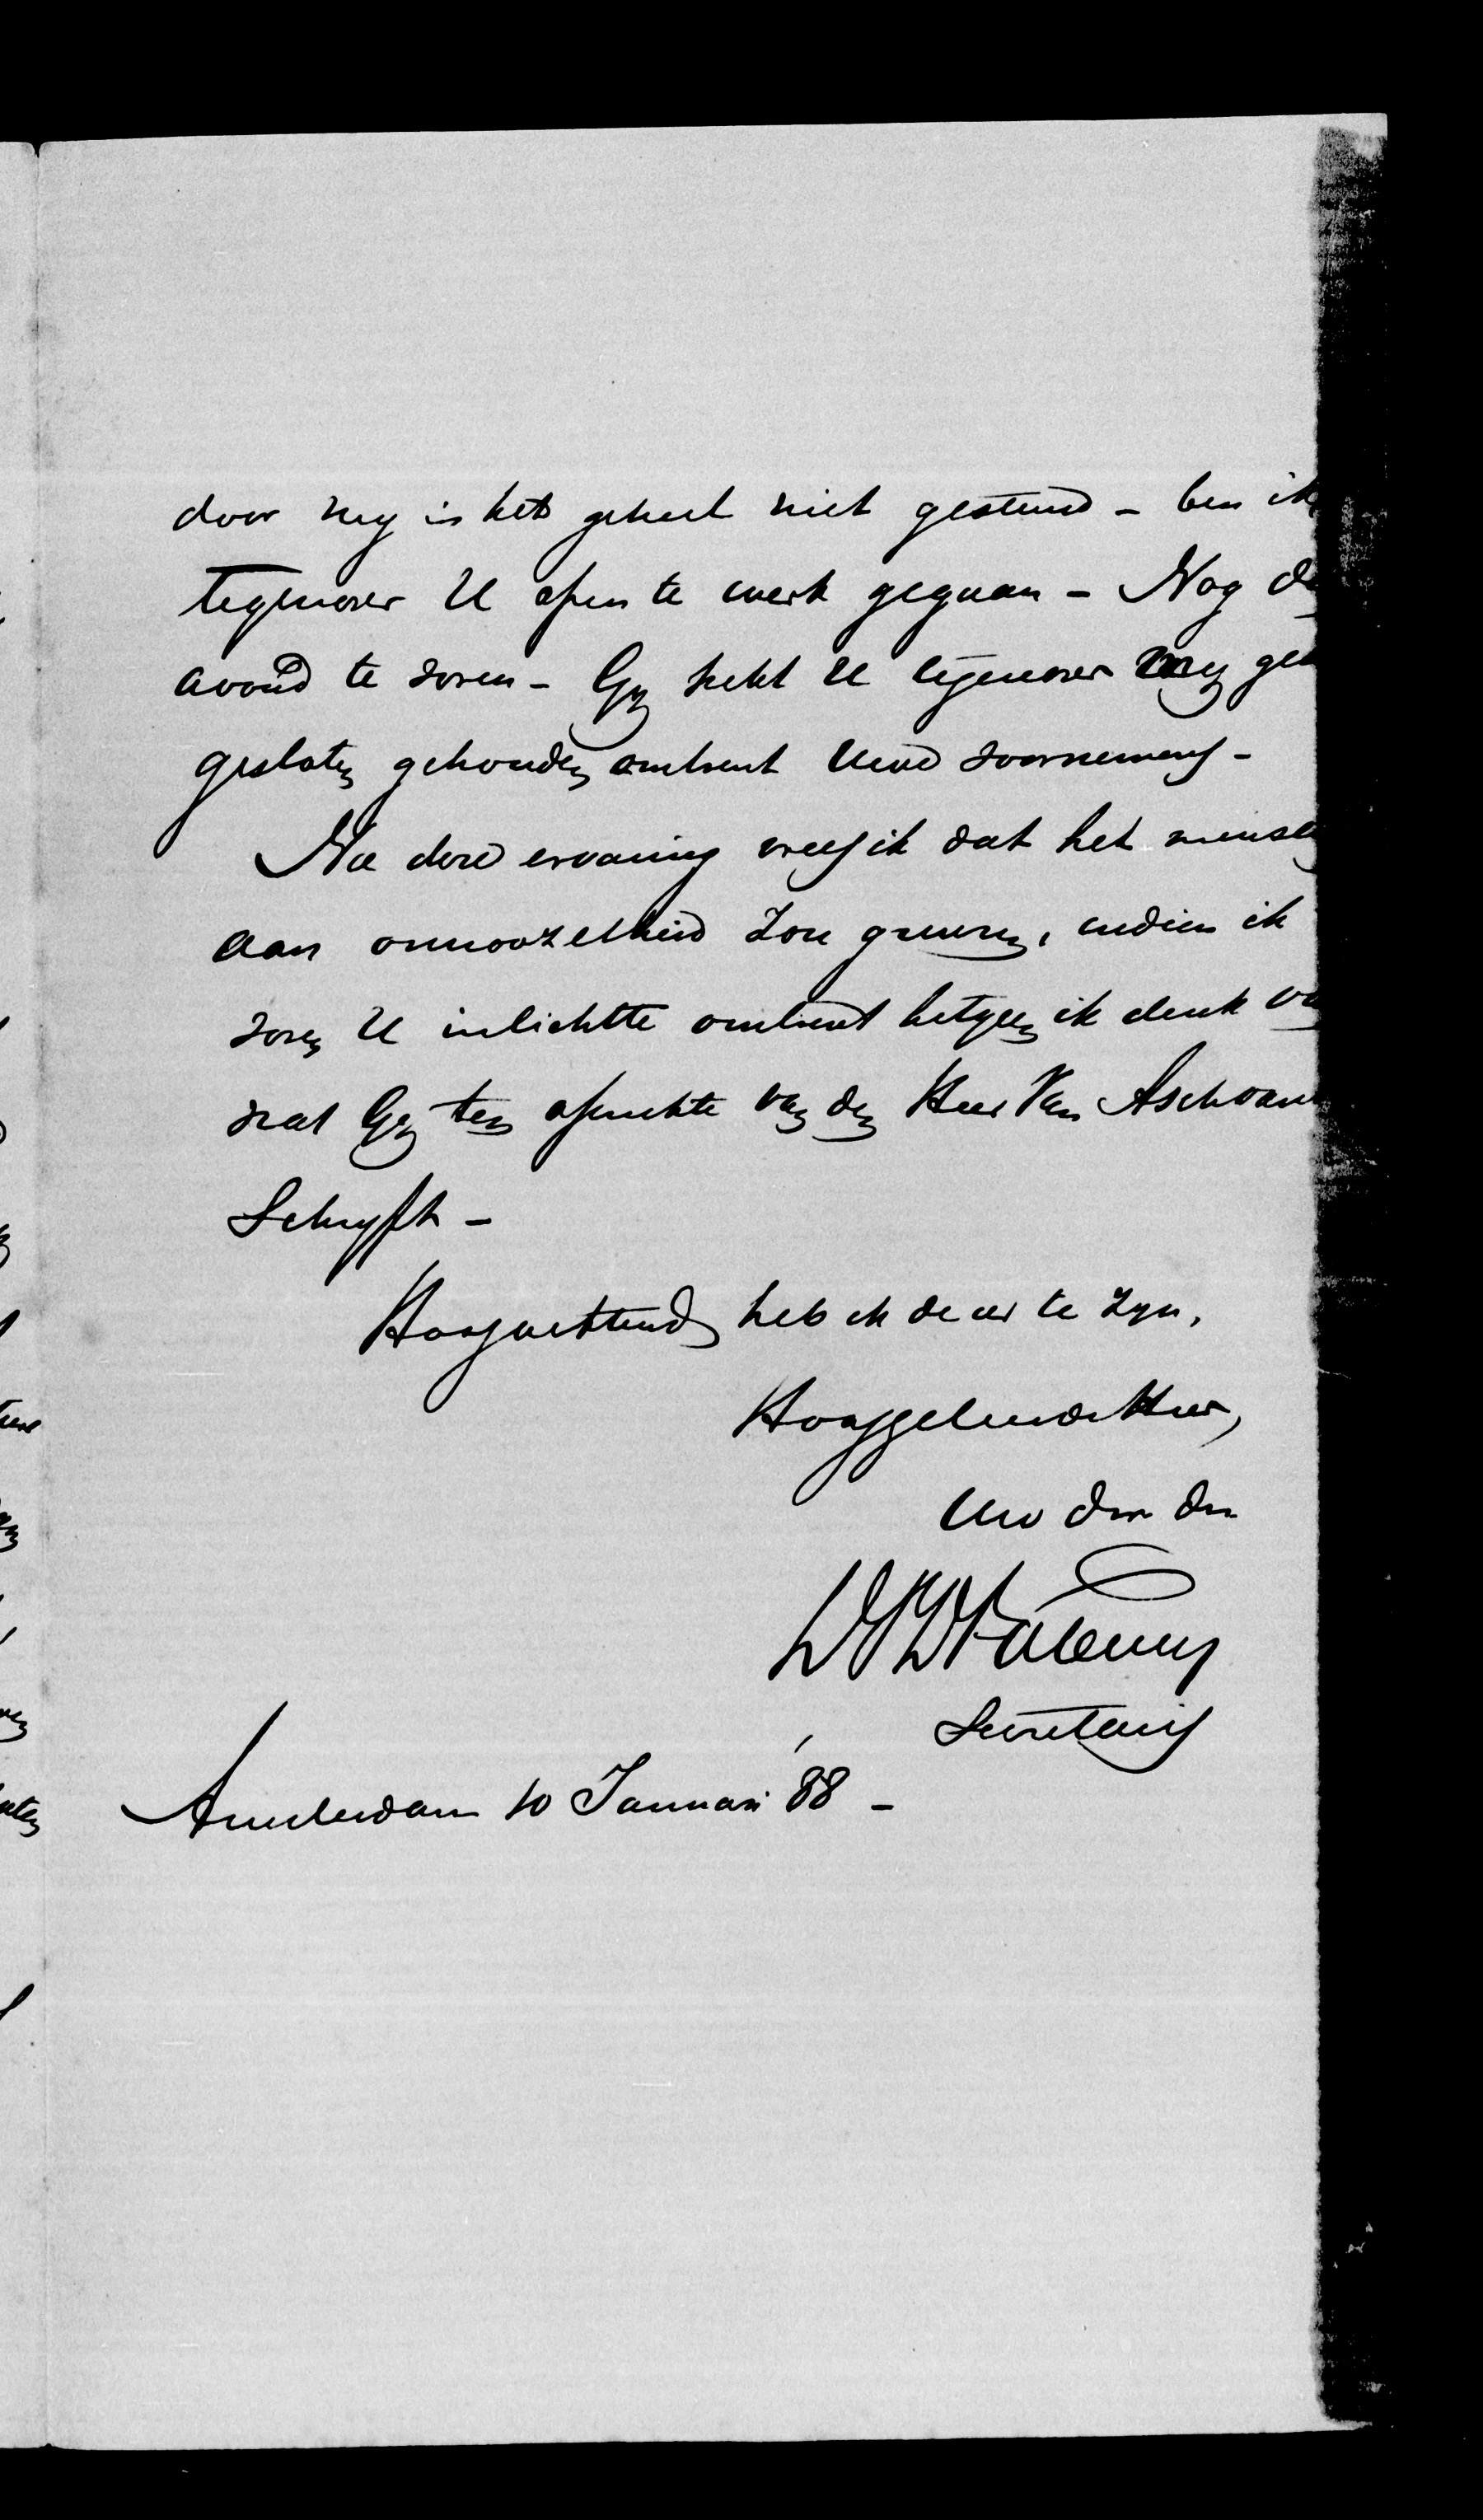 door my is het geheel niet gesteund - ben ik
tegenover U open te werk gegaan - Nog d
avond te voren - Gy hebt U tegenover my geh
gesloten gehouden omtrent Uwe voornemens -
Na deze ervaring vrees ik dat het
aan onnoozelheid zou grenzen, indien ik
voren U inlichtte omtrent hetgeen ik denk va
wat Gy ten opzichte van den Heer Van
Schryft -
Hoogachtend heb ik de eer te zyn,
HoogGeleerde Heer,
Uw dw dn
Secretaris
Amsterdam 10 Januari '88 -